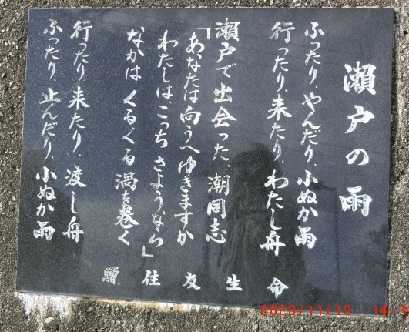 瀬戸の雨
ふったり やんだり、小ぬか雨
行ったり、来たり、わたし舟
瀬戸で出会った、潮同志
「あなたは向うへゆきますか
わたしはこっち さようなら」
なかは くるぐる 渦を巻く
行ったり、来たり、渡し舟
ふったり、止んだり、小ぬか雨
命 生 友 住 贈